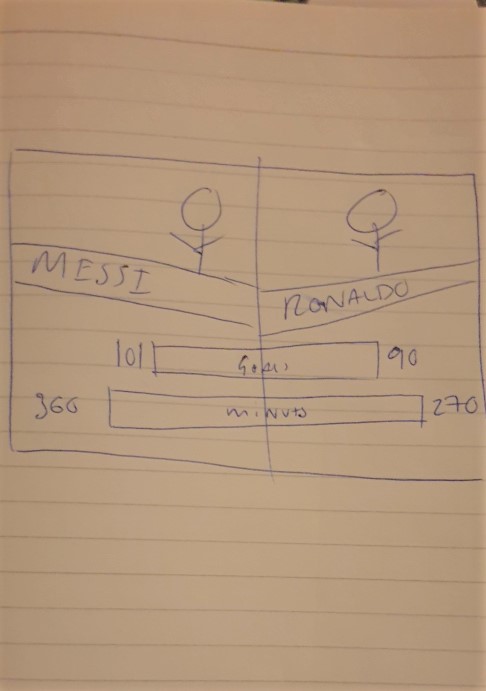 MESSI
RONALDO
101 Goals 90
360 minuts 270